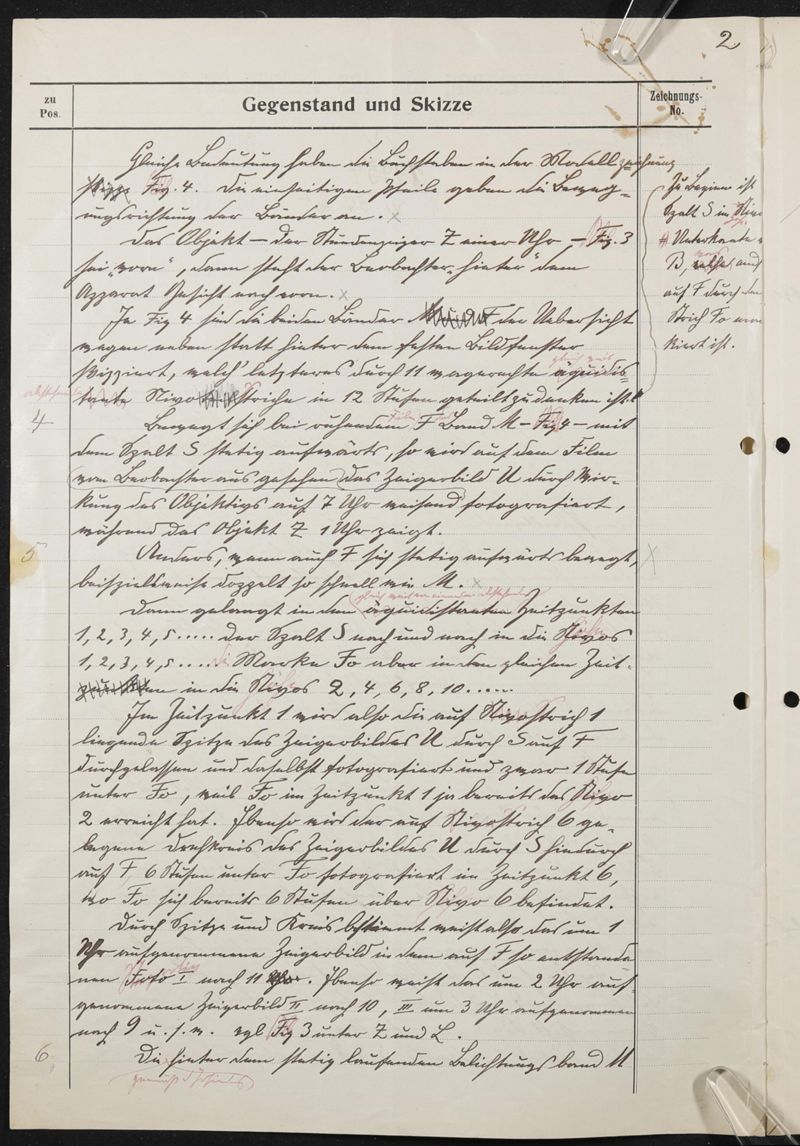 2
zu
Pos.
Gegenstand und Skizze
Zeichnungs-
No.
Gleiche Bedeutung haben die Buchstaben in der Modellzeichnung
Fig. 4. Die einseitigen Pfeile geben die Beweg-
ungsrichtung der Bänder an.
Das Objekt – der Stundenzeiger Z einer Uhr – Fig. 3
sei „vorn", dann steht der Beobachter „hinter" dem
Apparat Gesicht nach vorn.
In Fig 4 sind die beiden Bänder M F der Uebersicht
wegen neben statt hinter dem festen Bildfenster
skizziert, welch' letzteres durch 11 wagerechte äquidis-
tante Nivostriche in 12 Stufen geteilt zu denken ist.
Zu Beginn ist
Spalt S in
Unterkante
B, auch
auf F durch den
Strich Fo mar-
kiert ist.
4
Bewegt sich bei ruhendem F Band M – Fig 4 – mit
dem Spalt S stetig aufwärts, so wird auf dem Film
vom Beobachter aus gesehen das Zeigerbild U durch Wir-
kung des Objektivs auf 7 Uhr weisend fotografiert,
während das Objekt Z 1 Uhr zeigt.
5
Anders, wenn auch F sich stetig aufwärts bewegt,
beispielsweise doppelt so schnell wie M.
Dann gelangt in den äquidistanten Zeitpunkten
1, 2, 3, 4, 5 ..... der Spalt S nach und nach in die Nivos
1, 2, 3, 4, 5 ..... die Marke Fo aber in den gleichen Zeit-
en in die Nivos 2, 4, 6, 8, 10 .....
Im Zeitpunkt 1 wird also die auf Nivostrich 1
liegende Spitze des Zeigerbildes U durch S auf F
durchgelassen und daselbst fotografiert und zwar 1 Stufe
unter Fo, weil Fo im Zeitpunkt 1 ja bereits das Nivo
2 erreicht hat. Ebenso wird der auf Nivostrich 6 ge-
legene Drehkreis des Zeigerbildes U durch S hindurch
auf F 6 Stufen unter Fo fotografiert im Zeitpunkt 6,
wo Fo sich bereits 6 Stufen über Nivo 6 befindet.
Durch Spitze und Kreis bestimmt weist also das um 1
Uhr aufgenommene Zeigerbild in dem auf F so entstande
nen Foto I nach 11 Uhr. Ebenso weist das um 2 Uhr auf-
genommene Zeigerbild II nach 10, III um 3 Uhr aufgenommen
nach 9 u. s. w. vgl Fig 3 unter Z und L.
6
Die hinter dem stetig laufenden Belichtungsband M